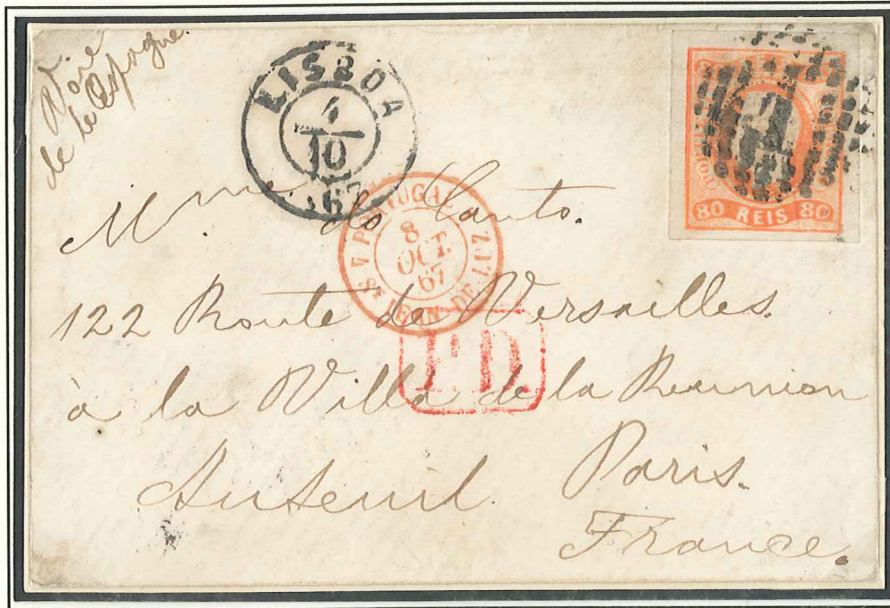 Voie
de l'Espagne.
LISBOA
4
10
67
PORTUGAL
8
OCT.
67
ST JEAN DE LUZ
P.D.
CORREIO
80 REIS 80
1
Mme do Canto.
122 Route de Versailles.
à la Villa de la Reunion
Auteuil Paris.
France.